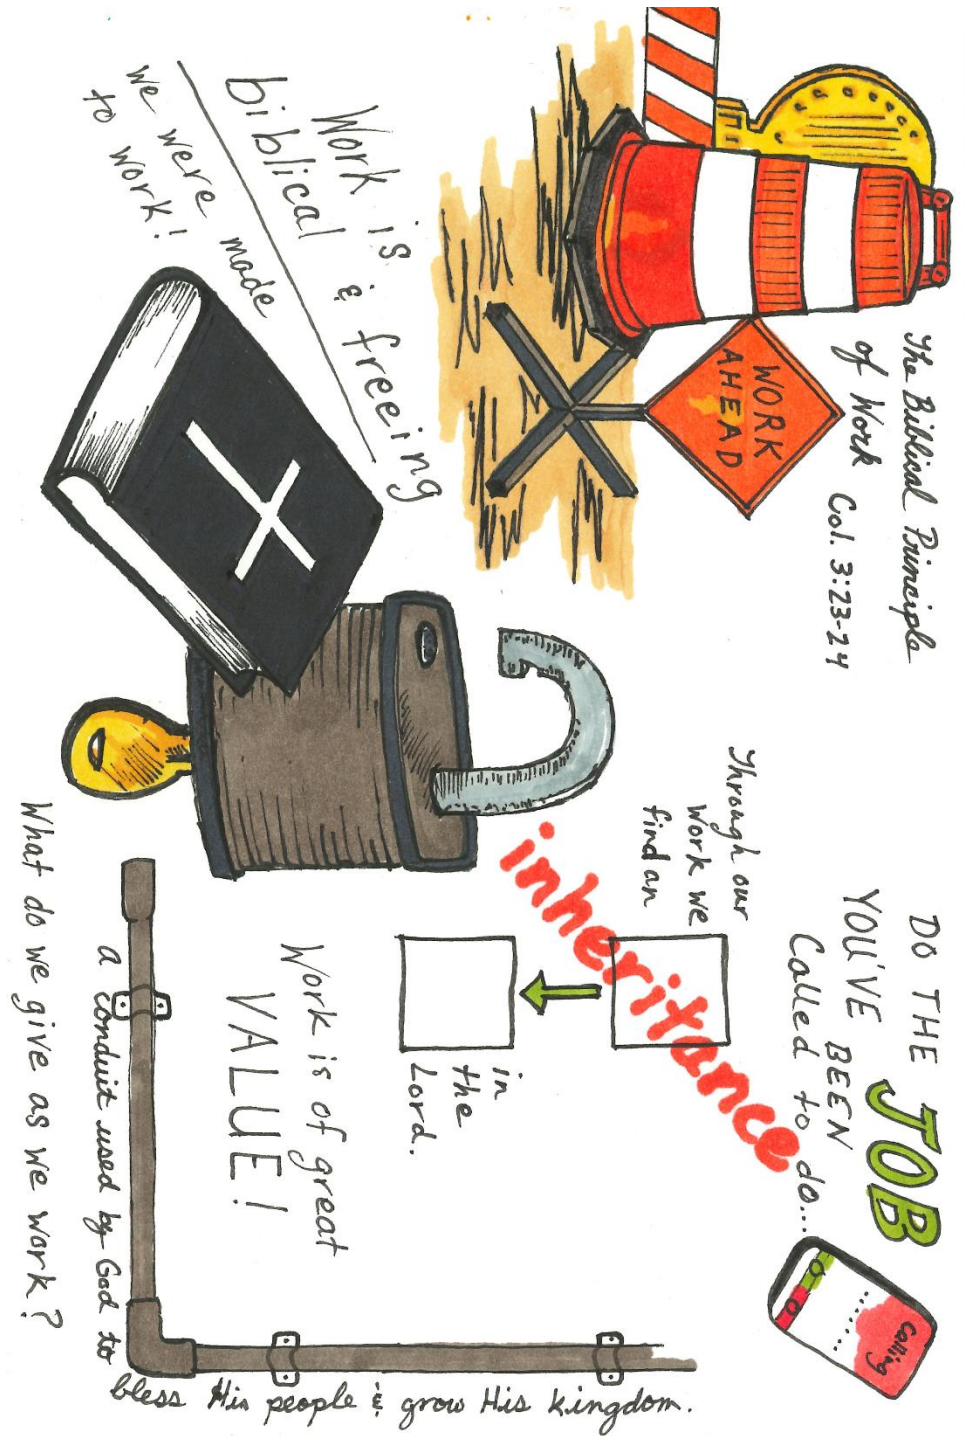 The Biblical Principle
of Work Col. 3:23-24
WORK
AHEAD
Work is
biblical & freeing
we were made
to work!
DO THE JOB
YOU'VE BEEN
Called to do...
Calling
Through our
Work we
find an
inheritance
in
the
Lord.
Work is of great
VALUE!
a conduit used by God to
bless His people & grow His kingdom.
What do we give as we work?